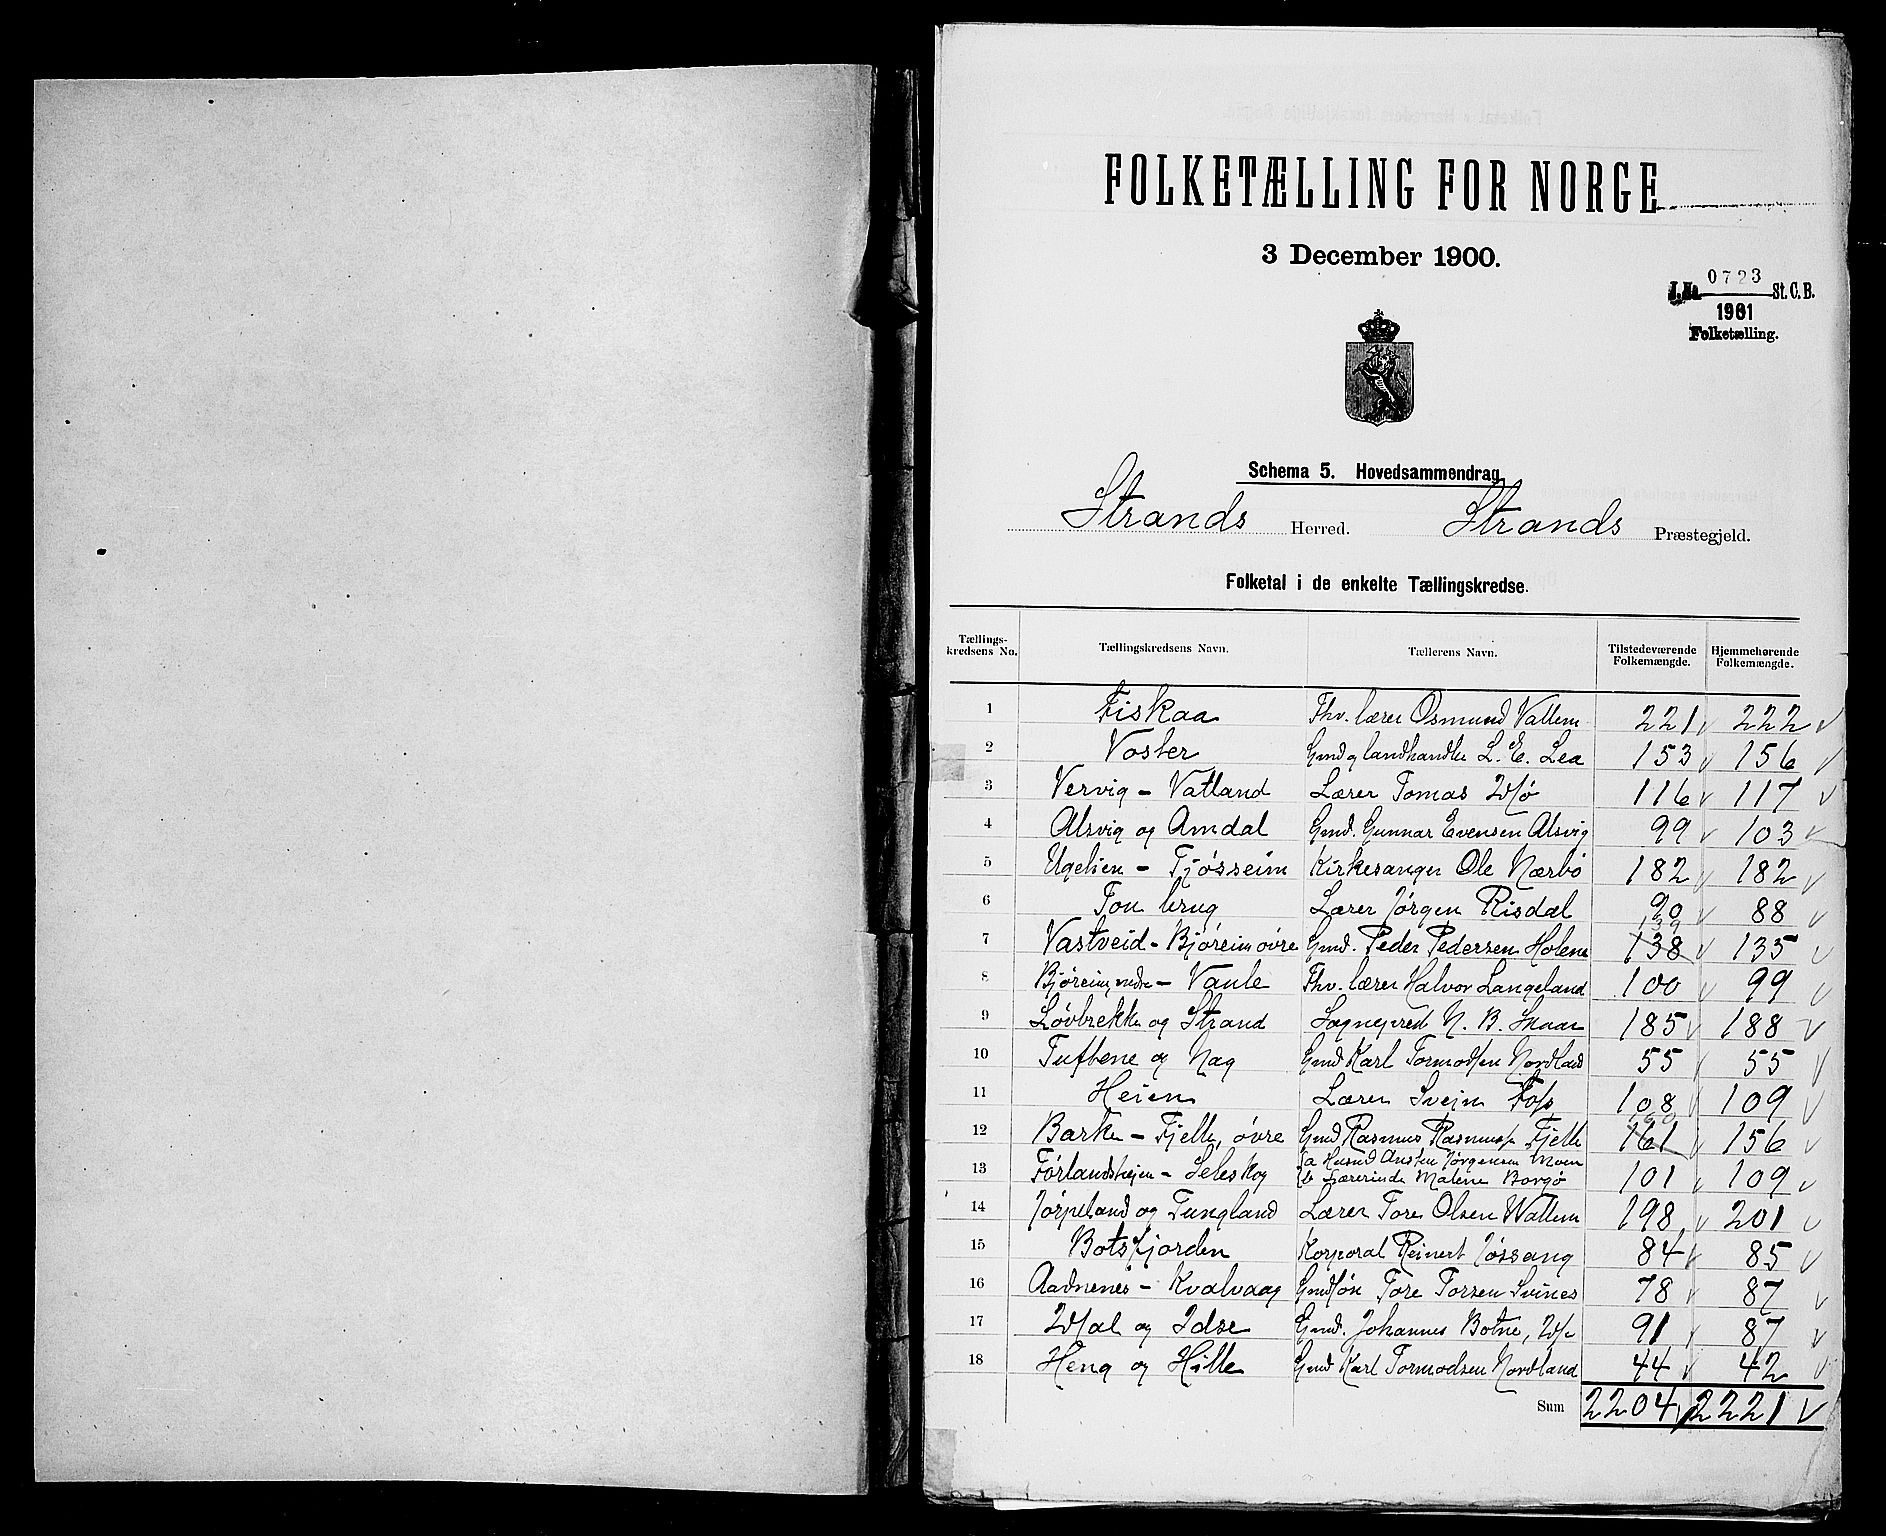 FOLKETÆLLING FOR NORGE
3 December 1900.
J.No. 0723 St.C.B.
1901
Folketælling.
Schema 5. Hovedsammendrag
Strands Herred. Strands Præstegjeld.
Folketal i de enkelte Tællingskredse.
Tællings-kredsens No. Tællingskredsens Navn. Tællerens Navn. Tilstedeværende Folkemængde. Hjemmehørende Folkemængde.
1 Fiskaa Fhv. lærer Osmund Vallem 221 222
2 Voster Gmd og landhandler L. E. Lea 153 156
3 Vervig - Vatland Lærer Tomas 116 117
4 Alsvig og Amdal Gmd. Gunnar Evensen Alsvig 99 103
5 Ugelien - Tjøsseim Kirkesanger Ole Nærbø 182 182
6 Tou brug Lærer Jørgen Risdal 90 88
7 Vastveid - Bjøreim øvre Gmd. Peder Pedersen Holene 138 139 135
8 Bjøreim, nedre - Vaule Fhv. lærer Halvor Langeland 100 99
9 Løvbrekke og Strand Sognepræst N. B. Skaar 185 188
10 Tuftene og Nag Gmd Karl Tormodsen Nordland 55 55
11 Heien Lærer Svein Foss 108 109
12 Barke - Fjelle, øvre Gmd Rasmus Rasmuss. Fjelle 161 160 156
13 Førlandsheien - Seleskog a Husmd Austen Jørgensen Moen
b Lærerinde Malene Borgø 101 109
14 Jørpeland og Tungland Lærer Tore Olsen Wallem 198 201
15 Botsfjorden Korporal Reinert Jøssang 84 85
16 Aadnenes - Kvalvaag Gmdsøn Tore Torsen Svines 78 87
17 og Idse Gmd. Johannes Botne, 91 87
18 Heng og Hille Gmd Karl Tormodsen Nordland 44 42
Sum 2204 2221